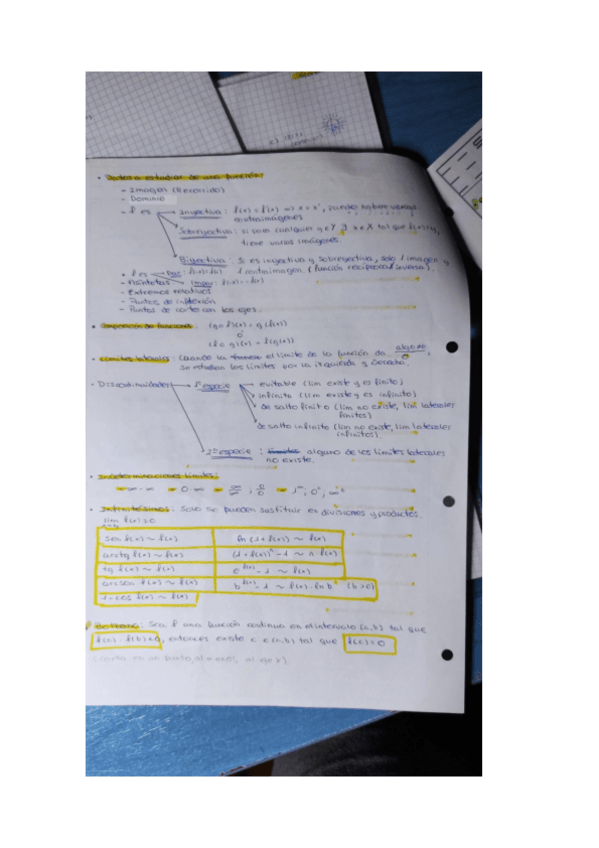 • Datos a estudiar de una función:
- Imagen (Recorrido)
- Dominio
- f es → Inyectiva: f(x) = f(x') ⇒ x = x', pueden haber varias
antiimágenes
Sobreyectiva: si para cualquier y ∈ Y ∃ x ∈ X tal que f(x)=y,
tiene varias imágenes.
Biyectiva: Si es inyectiva y sobreyectiva, solo 1 imagen y
1 antiimagen. (función recíproca/inversa).
• f es Par:
- Asíntotas Impar:
- Extremos relativos
- Puntos de inflexión
- Puntos de corte con los ejes.
• Composición de funciones: (g∘f)(x) = g(f(x))
o
(f∘g)(x) = f(g(x))
• Límites laterales: Cuando la el límite de la función da algo≠0/0,
se estudian los límites por la izquierda y derecha.
- Discontinuidades → 1ª especie → evitable (lim existe y es finito)
infinito (lim existe y es infinito)
de salto finito (lim no existe, lim laterales
finitos)
de salto infinito (lim no existe, lim laterales
infinitos).
2ª especie: límites alguno de los límites laterales
no existe.
• Indeterminaciones límites:
- ∞-∞ - 0·∞ - ∞/∞ ; 0/0 - 1^∞; 0^0; ∞^0
• Infinitésimos: Solo se pueden sustituir en divisiones y productos.
lim f(x)=0
sen f(x) ~ f(x) ln (1 + f(x)) ~ f(x)
arctg f(x) ~ f(x) (1 + f(x))^n - 1 ~ n·f(x)
tg f(x) ~ f(x) e^f(x) - 1 ~ f(x)
arcsen f(x) ~ f(x) b^f(x) - 1 ~ f(x)·ln b (b>0)
1-cos f(x) ~ f(x)
Bolzano: Sea f una función continua en el intervalo [a,b] tal que
f(a)·f(b)<0, entonces existe c ∈ (a,b) tal que f(c)=0
(corta en un punto, al menos, al eje x).